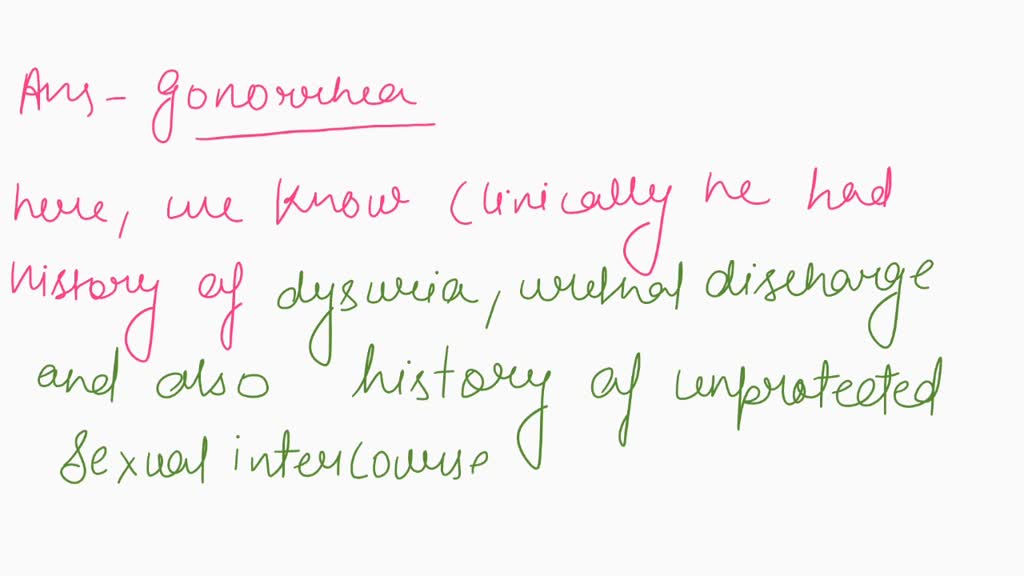 Ans - gonorrhea
here, we know clinically he had
history of dysuria, urethral discharge
and also history of unprotected
sexual intercourse